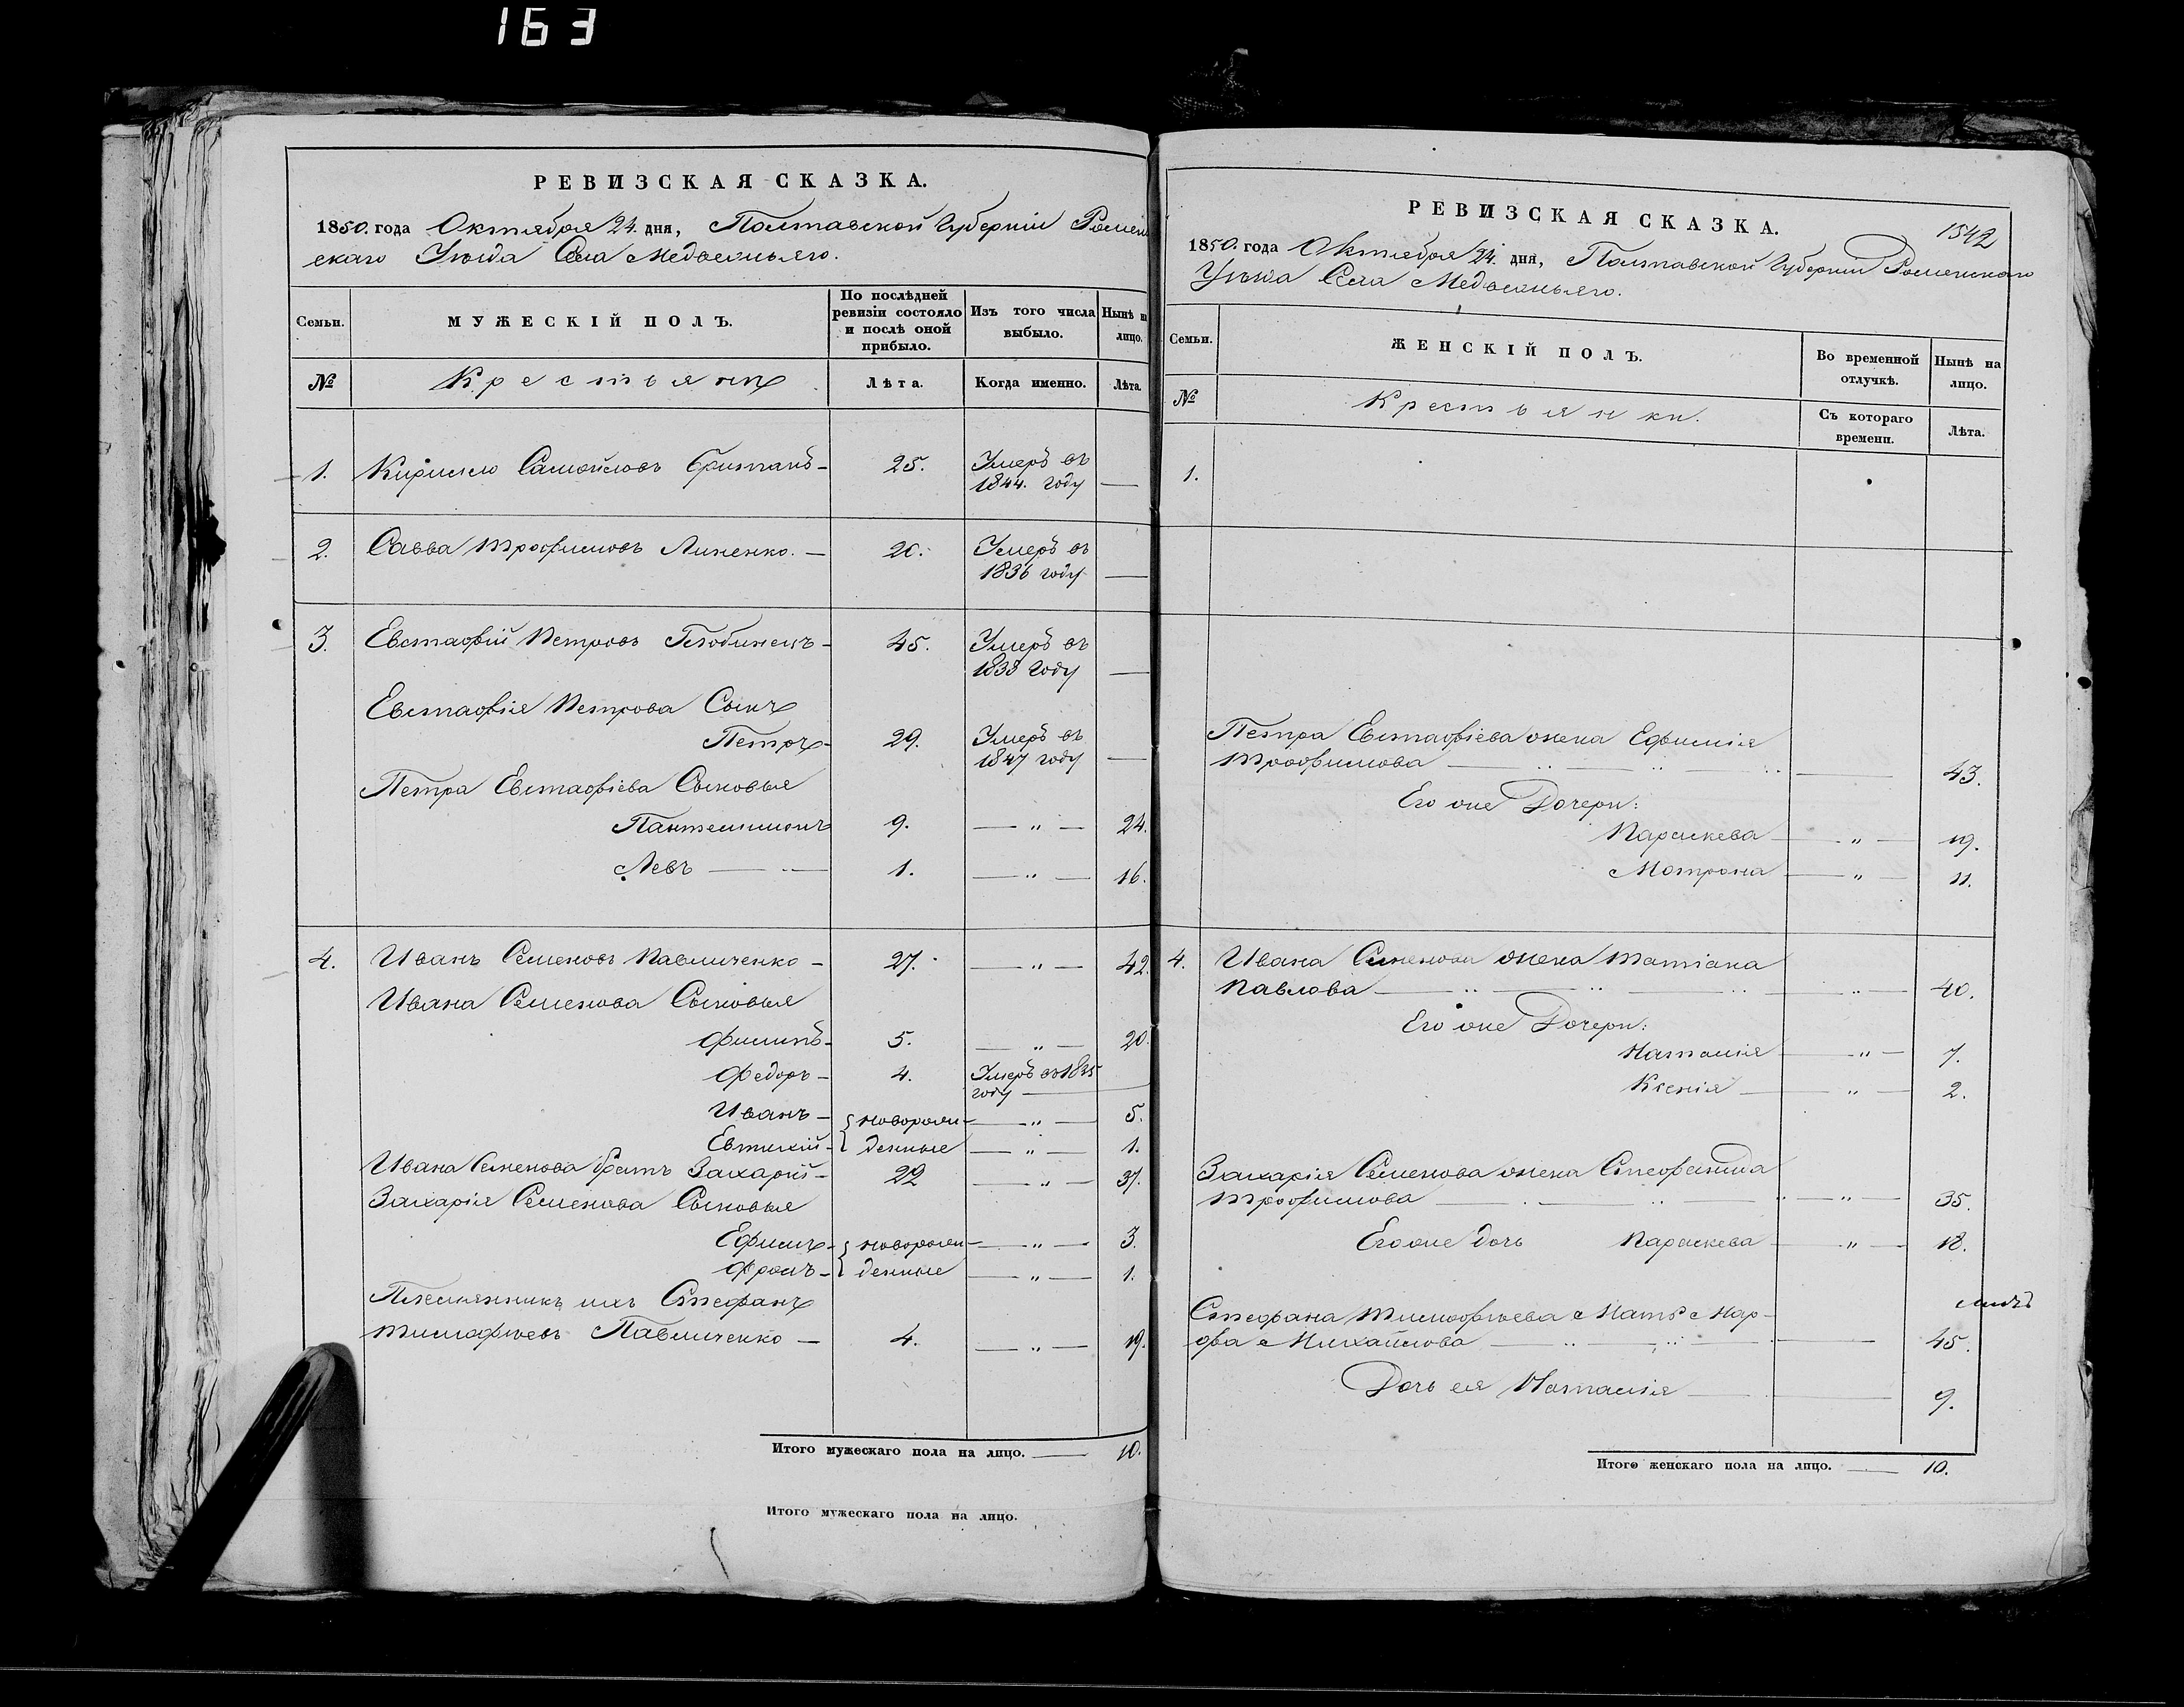 163
РЕВИЗСКАЯ СКАЗКА.
1850. года Октября 24. дня, Полтавской Губерніи Роменскаго
Уѣзда Села Медвежьяго.
Семьи.
МУЖЕСКІЙ ПОЛЪ.
По послѣдней ревизіи состояло и послѣ оной прибыло.
Изъ того числа выбыло.
Нынѣ на лицо.
№
Крестьянъ
Лѣта.
Когда именно.
Лѣта.
1. Кирилло Самойловъ 25. Умеръ въ
1844. году —
2. Савва Трофимовъ Линенко. — 20. Умеръ въ
1836 году —
3. Евстафій Петровъ 45. Умеръ въ
1838 году —
Евстафія Петрова Сынъ
Петръ 29. Умеръ въ
1847 году —
Петра Евстафіева Сыновья
Пантелимонъ 9. — „ — 24.
Левъ — 1. — „ — 16.
4. Иванъ Семеновъ Павличенко — 27. — „ — 42.
Ивана Семенова Сыновья
Филипъ — 5. — „ — 20.
Федоръ — 4. Умеръ въ 1835
году —
Иванъ — новорож- — „ — 5.
Евтихій — денные — „ — 1.
Ивана Семенова братъ Захарій — 22 — „ — 37.
Захарія Семенова Сыновья
Ефимъ — новорож- — „ — 3.
Фролъ — денные — „ — 1.
Племянникъ ихъ Стефанъ
Тимофѣевъ Павличенко — 4. — „ — 19.
Итого мужескаго пола на лицо. — 10.
Итого мужескаго пола на лицо.
1542
РЕВИЗСКАЯ СКАЗКА.
1850. года Октября 24. дня, Полтавской Губерніи Роменскаго
Уѣзда Села Медвежьяго.
Семьи.
ЖЕНСКІЙ ПОЛЪ.
Во временной отлучкѣ.
Нынѣ на лицо.
№
Крестьянки.
Съ котораго времени.
Лѣта.
1.
Петра Евстафіева жена Ефимія
Трофимова — 43.
Его же Дочери:
Параскева — „ — 19.
Мотрона — „ — 11.
4. Ивана Семенова жена Татіана
Павлова — „ — 40.
Его же Дочери:
Наталія — „ — 7.
Ксенія — „ — 2.
Захарія Семенова жена Стефанида
Трофимова — „ — 35.
Его же дочь Параскева — „ — 12.
Стефана Тимофѣева Мать Мар-
фа Михайлова — 45.
Дочь ея Наталія — 9.
Итого женскаго пола на лицо. — 10.